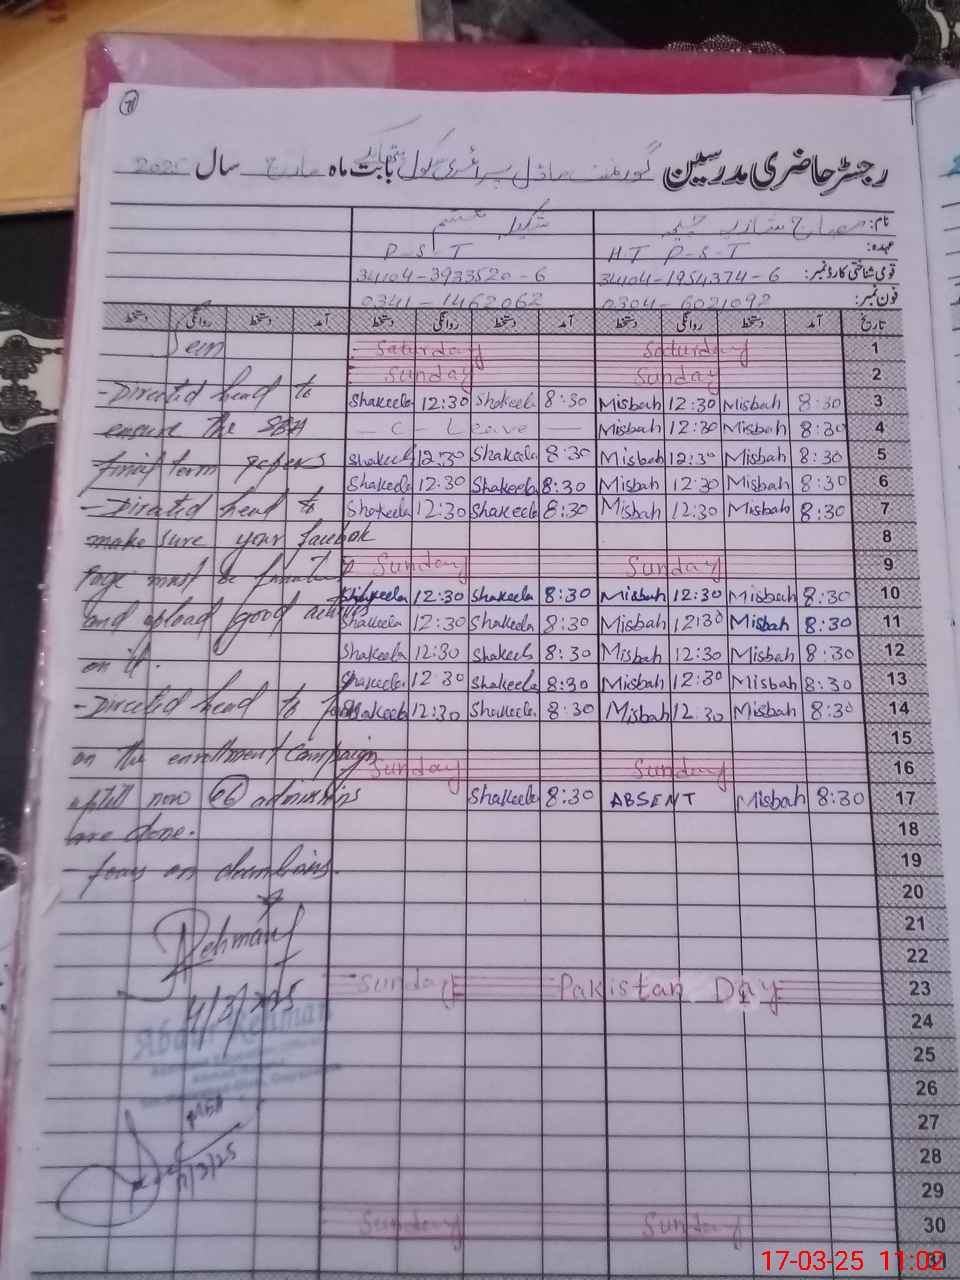 رجسٹر حاضری مدرسین گورنمنٹ ماڈل پرائمری سکول بابت ماہ مارچ سال 2025
نام: شکیلہ
عہدہ: HT P-S-T P-S-T
قومی شناختی کارڈ نمبر: 34104-1954374-6 34104-3933520-6
فون نمبر: 0304-6021092 0341-1462062
تاریخ آمد دستخط روانگی دستخط آمد دستخط روانگی دستخط آمد دستخط روانگی دستخط
Seen Saturday Saturday 1
Sunday Sunday 2
- Directed head to Shakeela 12:30 Shakeela 8:30 Misbah 12:30 Misbah 8:30 3
ensure the SBA - C - Leave - Misbah 12:30 Misbah 8:30 4
first term papers Shakeela 12:30 Shakeela 8:30 Misbah 12:30 Misbah 8:30 5
Shakeela 12:30 Shakeela 8:30 Misbah 12:30 Misbah 8:30 6
- Directed head to Shakeela 12:30 Shakeela 8:30 Misbah 12:30 Misbah 8:30 7
make sure your facebook 8
Page must be Sunday Sunday 9
Shakeela 12:30 Shakeela 8:30 Misbah 12:30 Misbah 8:30 10
and upload good Shakeela 12:30 Shakeela 8:30 Misbah 12:30 Misbah 8:30 11
on it. Shakeela 12:30 Shakeela 8:30 Misbah 12:30 Misbah 8:30 12
Shakeela 12:30 Shakeela 8:30 Misbah 12:30 Misbah 8:30 13
- Directed head to focus Shakeela 12:30 Shakeela 8:30 Misbah 12:30 Misbah 8:30 14
15
on the enrollment campaign Sunday Sunday 16
uptill now 06 admissions Shakeela 8:30 ABSENT Misbah 8:30 17
are done. 18
- focus on 19
20
Rehman 21
22
Sunday Pakistan Day 23
24
Abdul Rehman 25
26
27
28
29
Sunday Sunday 30
31
17-03-25 11:02